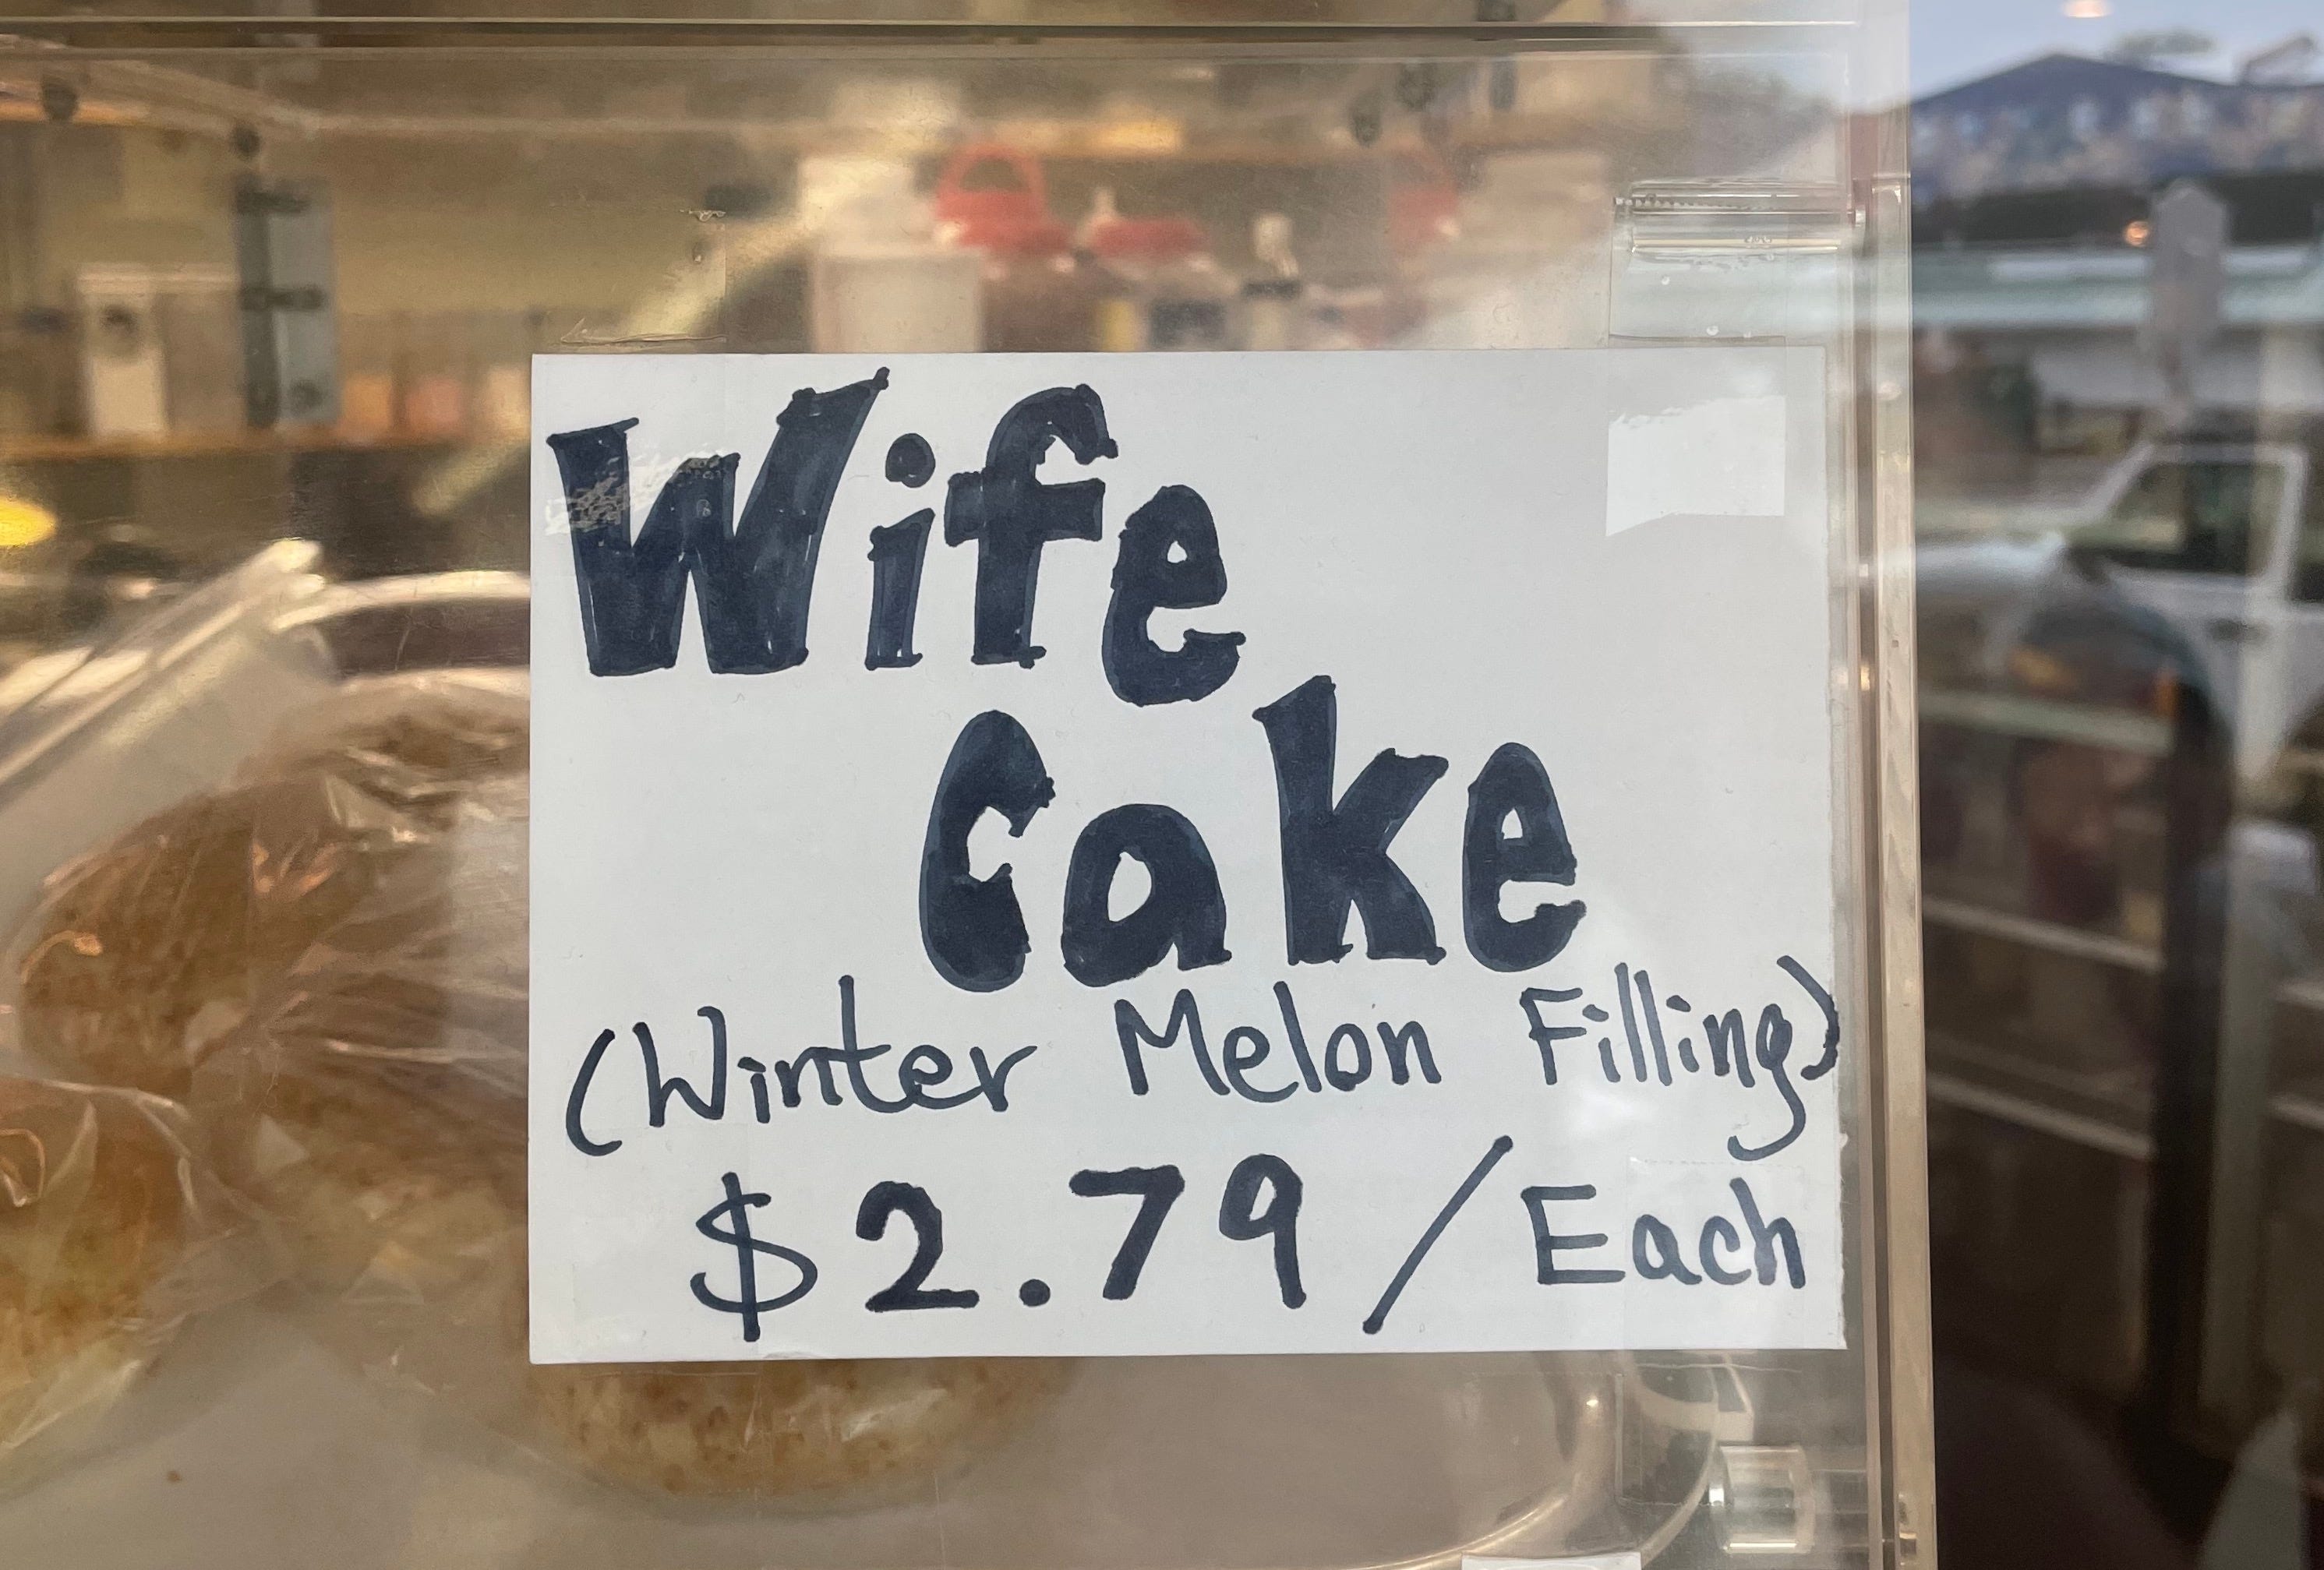 Wife
Cake
(Winter Melon Filling)
$2.79/Each